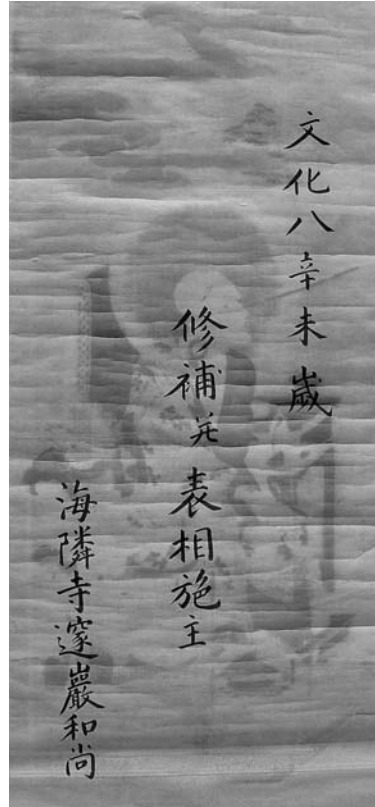 文化八辛未歳
修補并表相施主
海隣寺邃巖和尚